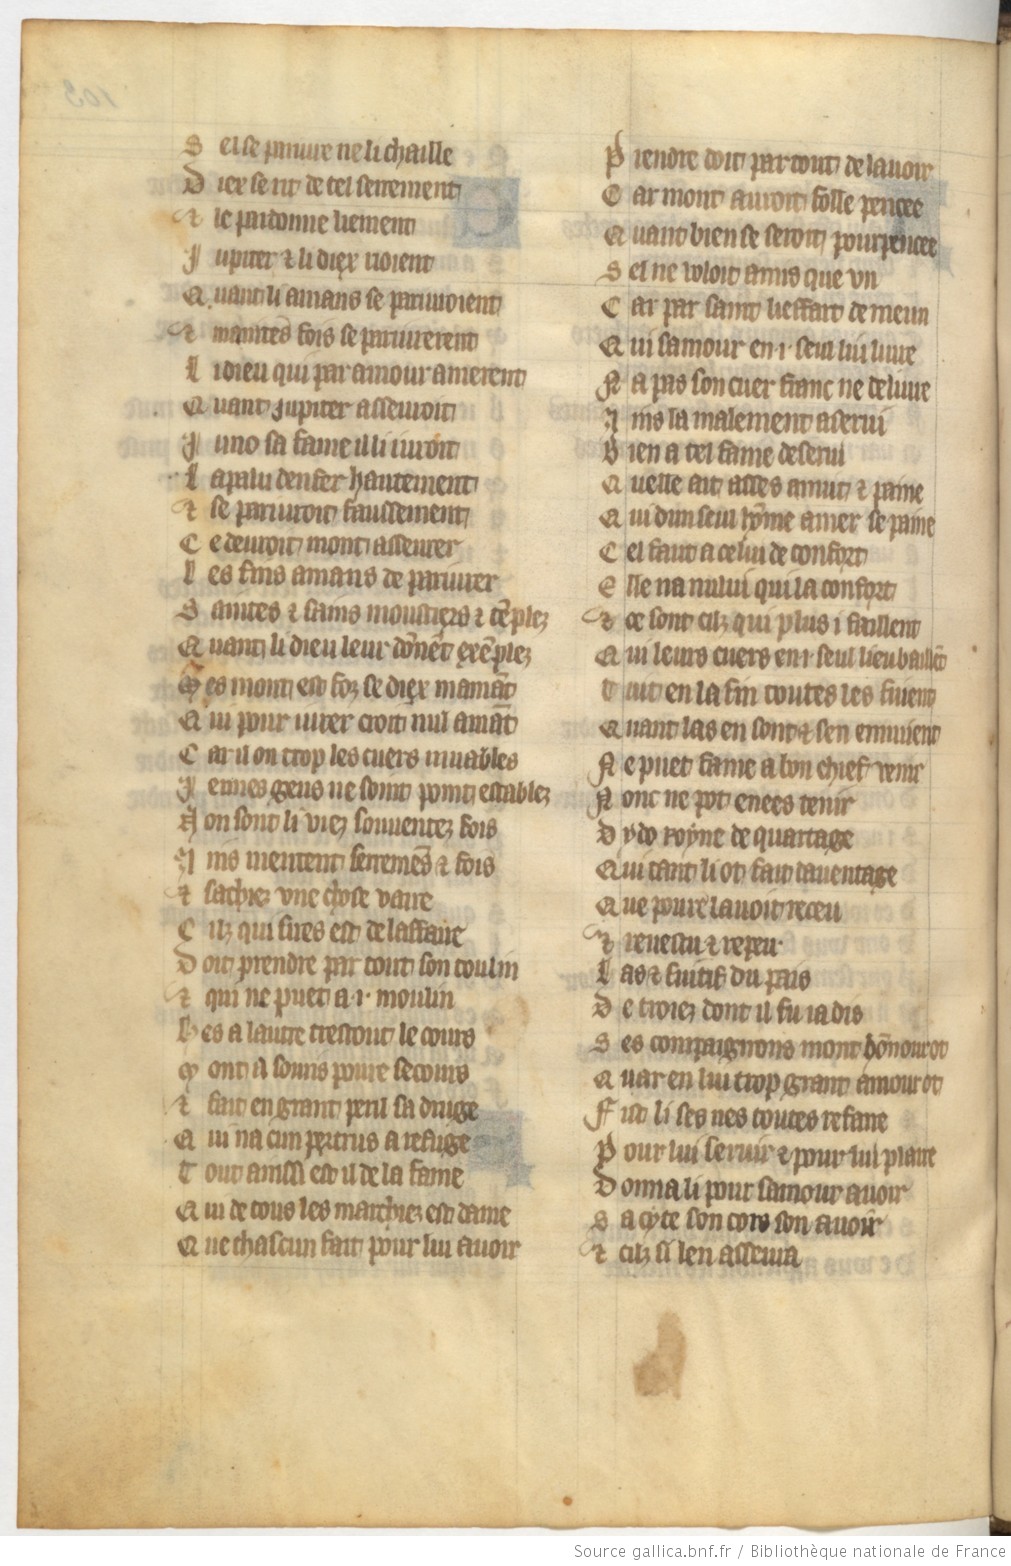 S el se pariure ne li chaille
D iex se rit de tel serrement
Et le pardonne liement
J upiter & li diex rioient
Q uant li amans se pariuroient
Et maintes fois se pariurerent
L i dieu qui par amour amerent
Q uant jupiter asseuroit
J uno sa fame il li iuroit
L a palu denfer hautement
Et se pariuroit faussement
C e deuroit mont asseurer
L es fins amans de pariurer
S aintes & sains moustiers & tēples
Q uant li dieu leur dōnēt exēples
M es mont est folz se diex mamāt
Q ui pour iurer croit nul amāt
C ar il on trop les cuers muables
J ennes gens ne soint point estables
N on sont li viez souuentez fois
A ins mentent serremēs & fois
Et sachiez vne chose vaire
C ilz qui sires est de laffaire
D oit prendre par tout son toulin
Et qui ne puet a .i. moulin
H es a lautre trestout le cours
M ont a souris poure secours
Et fait en grant peril sa druge
Q ui na cun pertrus a refuge
T out aussi est il de la fame
Q ui de tous les marchiez est dame
Q ue chascun fait pour lui auoir
P rendre doit par tout de lauoir
C ar mont auroit folle pencee
Q uant bien se seroit pourpencee
S el ne voloit amis que vn
C ar par saint lieffart de meun
Q ui samour en .i. seul lui liure
N a pas son cuer franc ne deliure
A ins la malement aserui
B ien a tel fame deserui
Q uelle ait asses annui & paine
Q ui dun seul hōme amer se paine
C el faut a celui de confort
E lle na nului qui la confort
Et ce sont cilz qui plus i faillent
Q ui leurs cuers en .i. seul lieu baillēt
T uit en la fin toutes les fuient
Q uant las en sont & sen ennuient
N e puet fame a bon chief venir
N onc ne pot enees tenir
D ydo royne de quartage
Q ui tant li ot fait dauentage
Q ue poure lauoit receu
Et reuestu & repeu
L as & fuitif du pais
D e troiez dont il fu iadis
S es compaignons mont hōnourot
Q uar en lui trop grant amour ot
F ist li ses nes toutes refaire
P our lui seruir & pour lui plaire
D onna li pour samour auoir
S a cyte son cors son auoir
Et cilz si len asseura
Source gallica.bnf.fr / Bibliothèque nationale de France